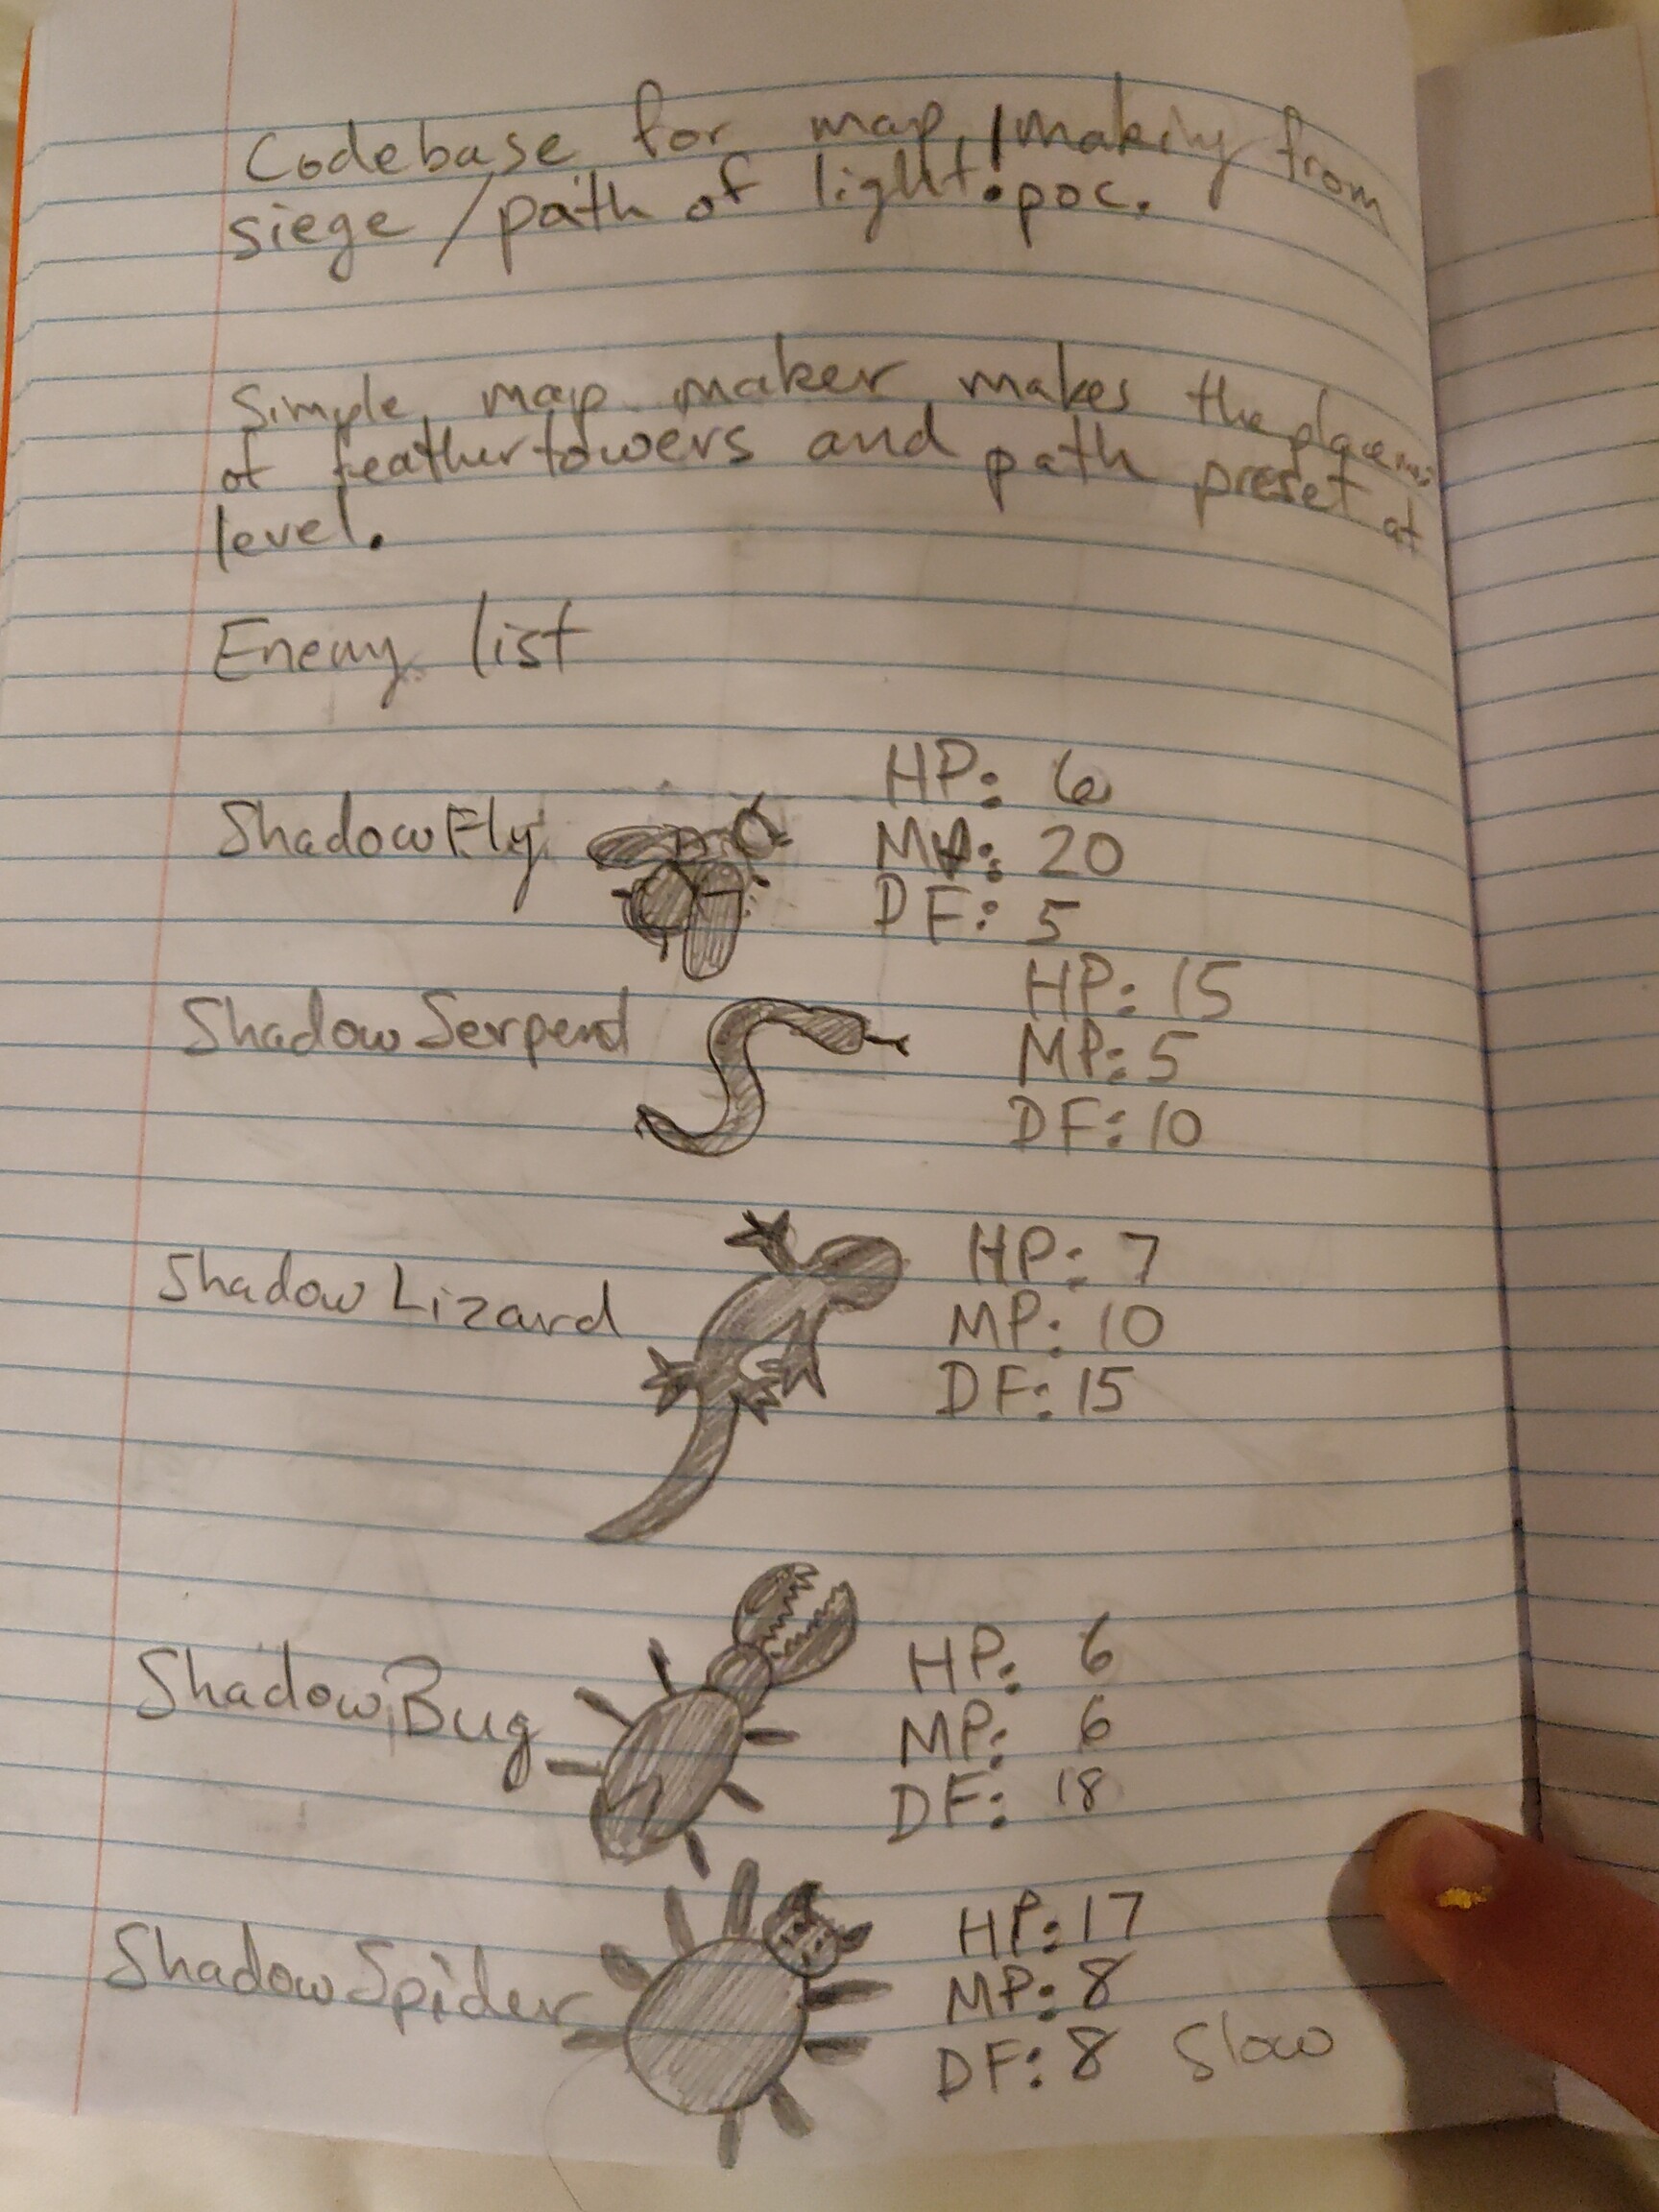 Codebase for map making from
siege/path of light. poc.
Simple map maker makes the
of feather towers and path preset at
level.
Enemy list
ShadowFly
HP: 6
20
DF: 5
Shadow Serpent
HP: 15
MP: 5
DF: 10
Shadow Lizard
HP: 7
MP: 10
DF: 15
Shadow Bug
HP: 6
MP: 6
DF: 18
Shadow Spider
HP: 17
MP: 8
DF: 8 Slow